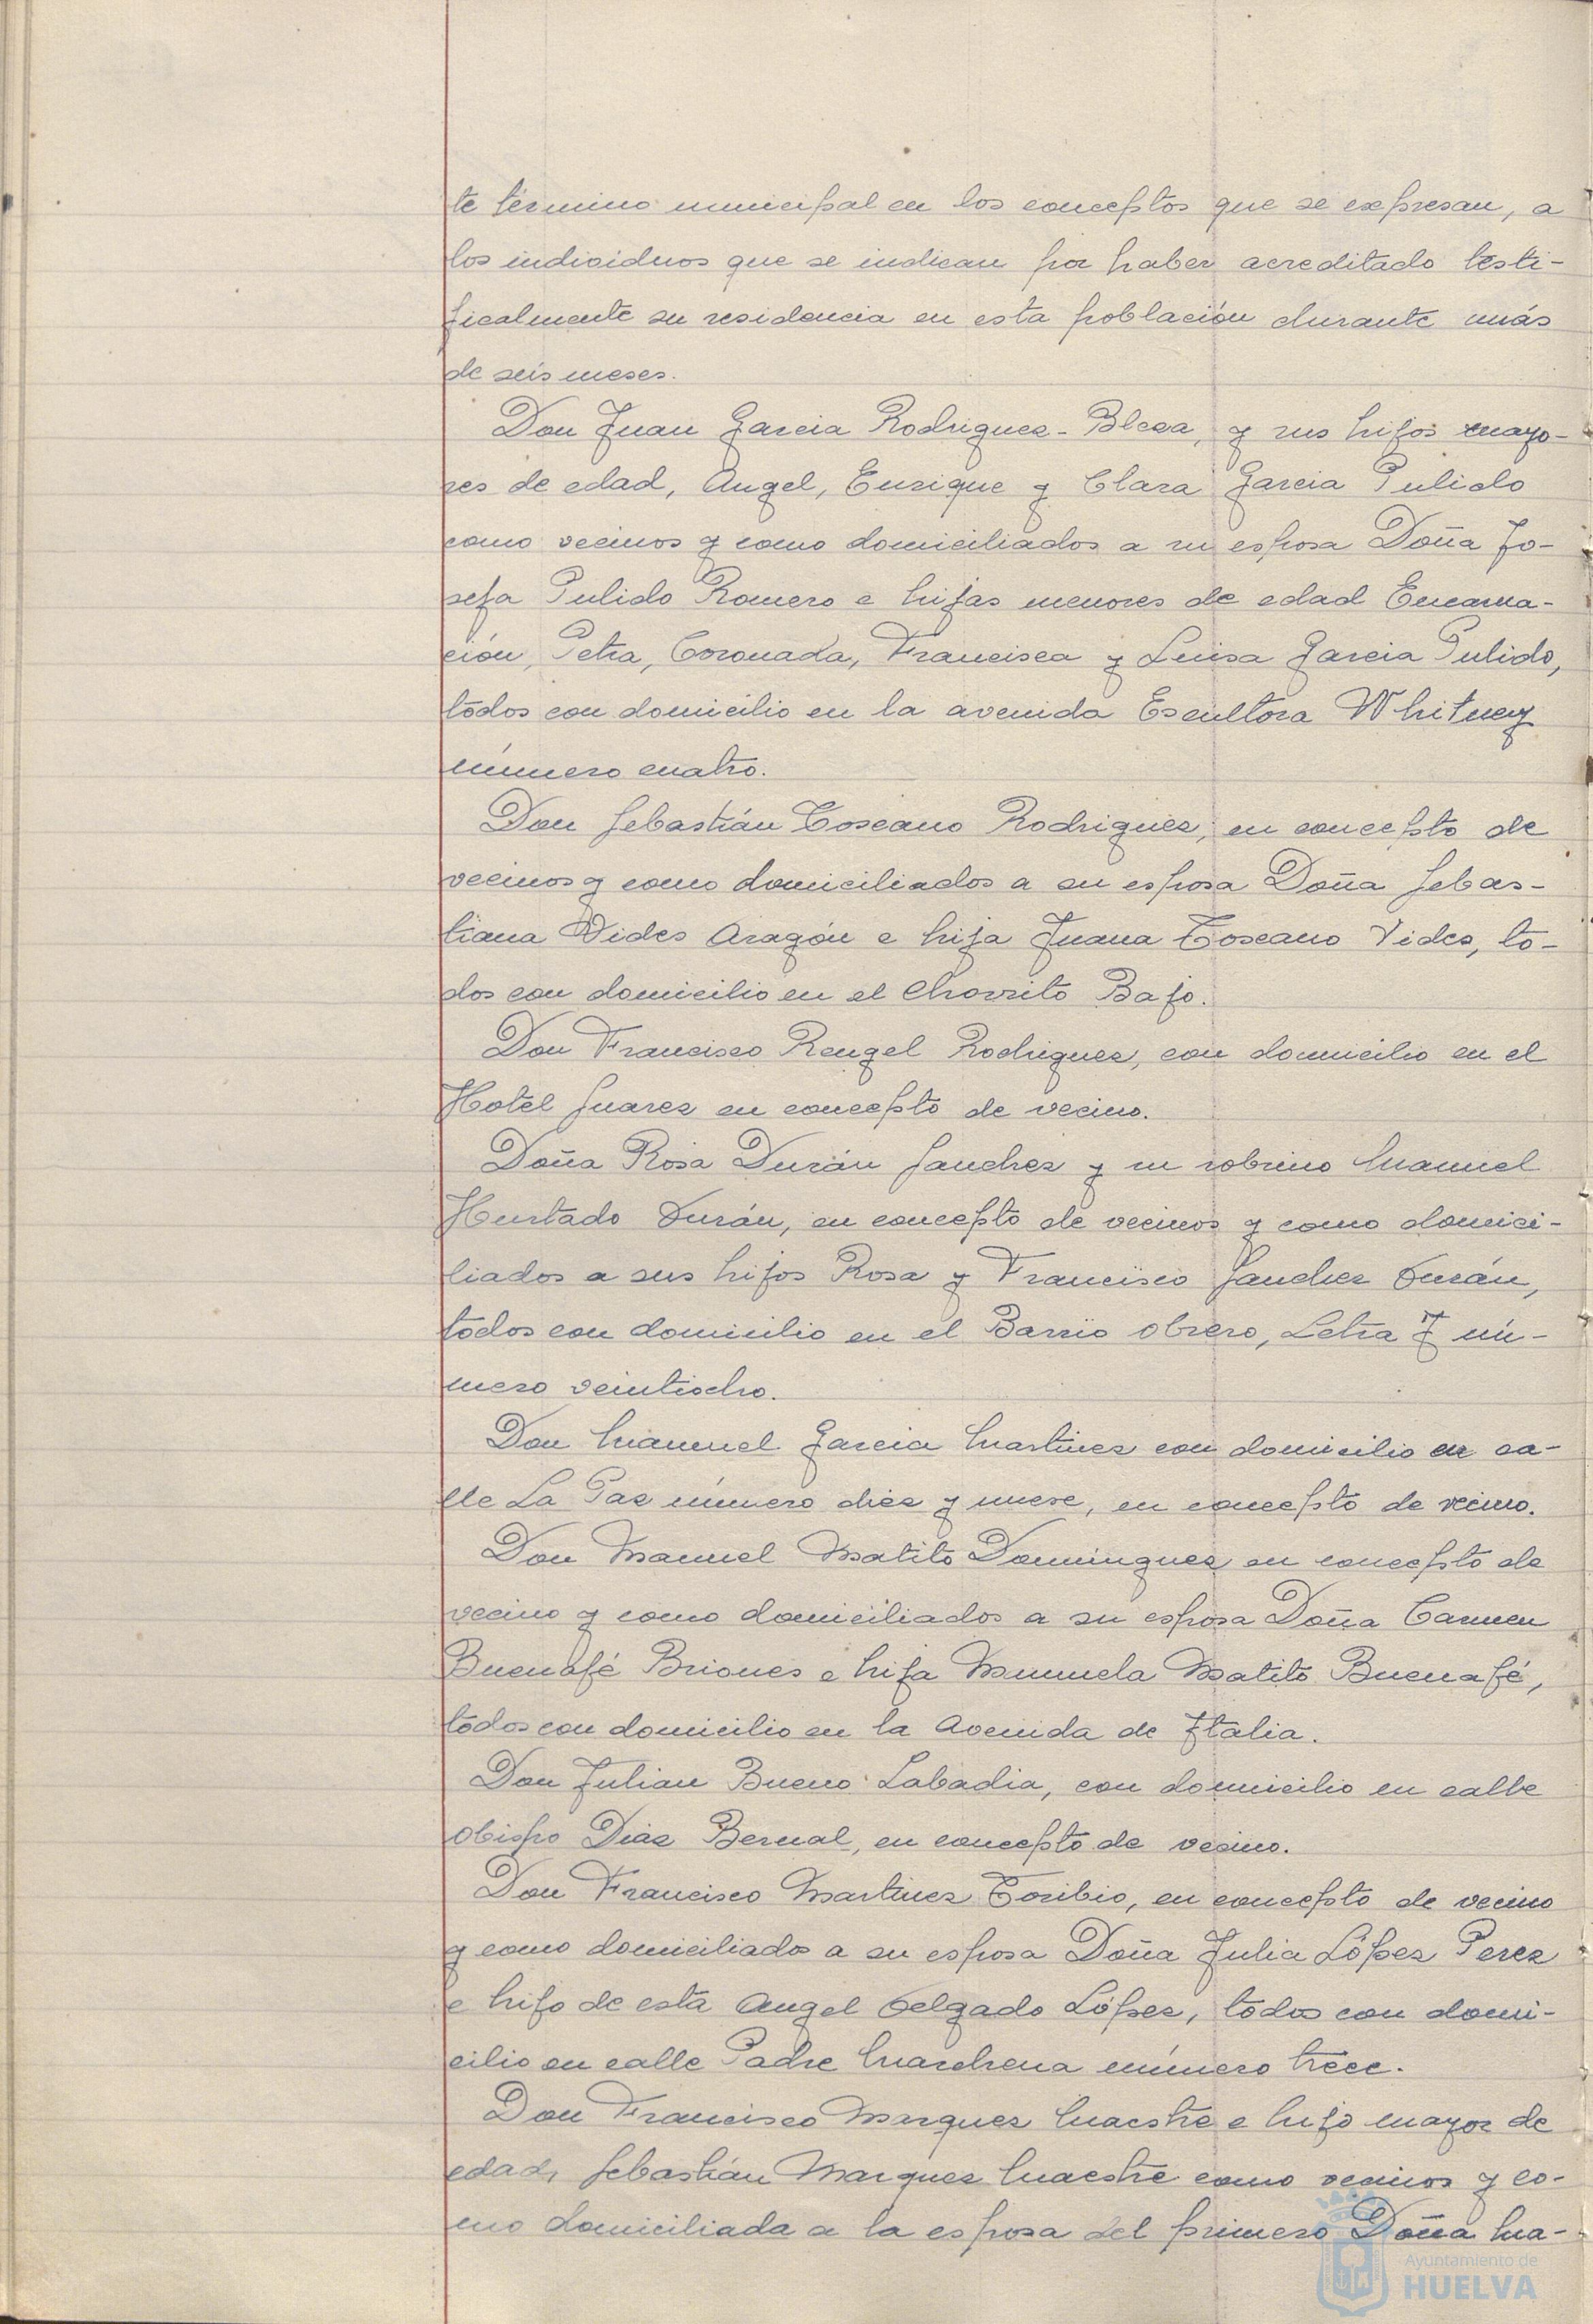 te término municipal en los conceptos que se expresan, a
los individuos que se indican por haber acreditado testi-
ficalmente su residencia en esta población durante más
de seis meses.
Don Juan Garcia Rodriguez-Blesa, y sus hijos mayo-
res de edad, Angel, Enrique y Clara Garcia Pulido
como vecinos y como domiciliados a su esposa Doña Jo-
sefa Pulido Romero e hijas menores de edad Encarna-
ción, Petra, Coronada, Francisca y Luisa Garcia Pulido,
todos con domicilio en la avenida Escultora Whitney
número cuatro.
Don Sebastián Toscano Rodriguez, en concepto de
vecinos y como domiciliados a su esposa Doña Sebas-
tiana Vides Aragón e hija Juana Toscano Vides, to-
dos con domicilio en el Chorrito Bajo.
Don Francisco Rengel Rodriguez, con domicilio en el
Hotel Suarez en concepto de vecino.
Doña Rosa Durán Sanchez y su sobrino Manuel
Hurtado Durán, en concepto de vecinos y como domici-
liados a sus hijos Rosa y Francisco Sanchez Durán,
todos con domicilio en el Barrio Obrero, Letra nú-
mero veintiocho.
Don Manuel Garcia Martinez con domicilio en ca-
lle La Paz número diez y nueve, en concepto de vecino.
Don Manuel Matito Dominguez en concepto de
vecino y como domiciliados a su esposa Doña Carmen
Buenafé Briones e hija Manuela Matito Buenafé,
todos con domicilio en la Avenida de Italia.
Don Julian Bueno Labadia, con domicilio en calle
Obispo Diaz Bernal, en concepto de vecino.
Don Francisco Martinez Toribio, en concepto de vecino
y como domiciliados a su esposa Doña Julia López Perez
e hijo de esta Angel Delgado López, todos con domi-
cilio en calle Padre Marchena número trece.
Don Francisco Marquez Maestre e hijo mayor de
edad, Sebastián Marquez Maestre como vecinos y co-
mo domiciliada a la esposa del primero Doña Ma-
Ayuntamiento de
HUELVA